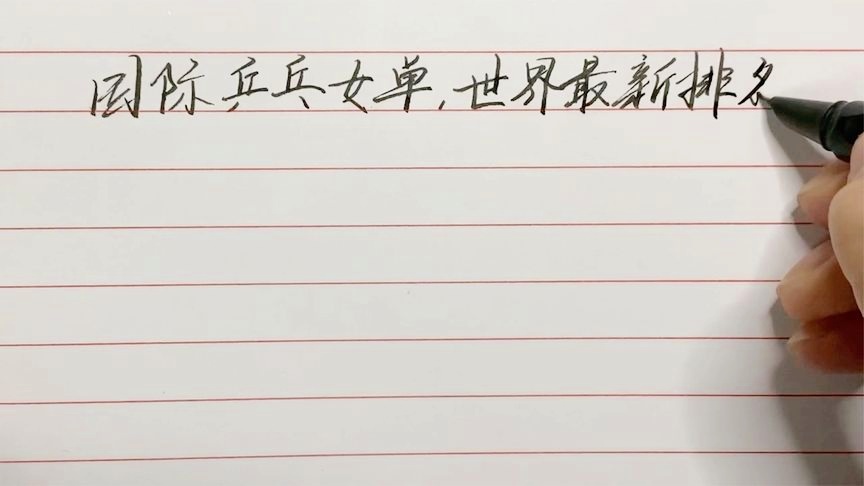 国际乒乓女单,世界最新排名